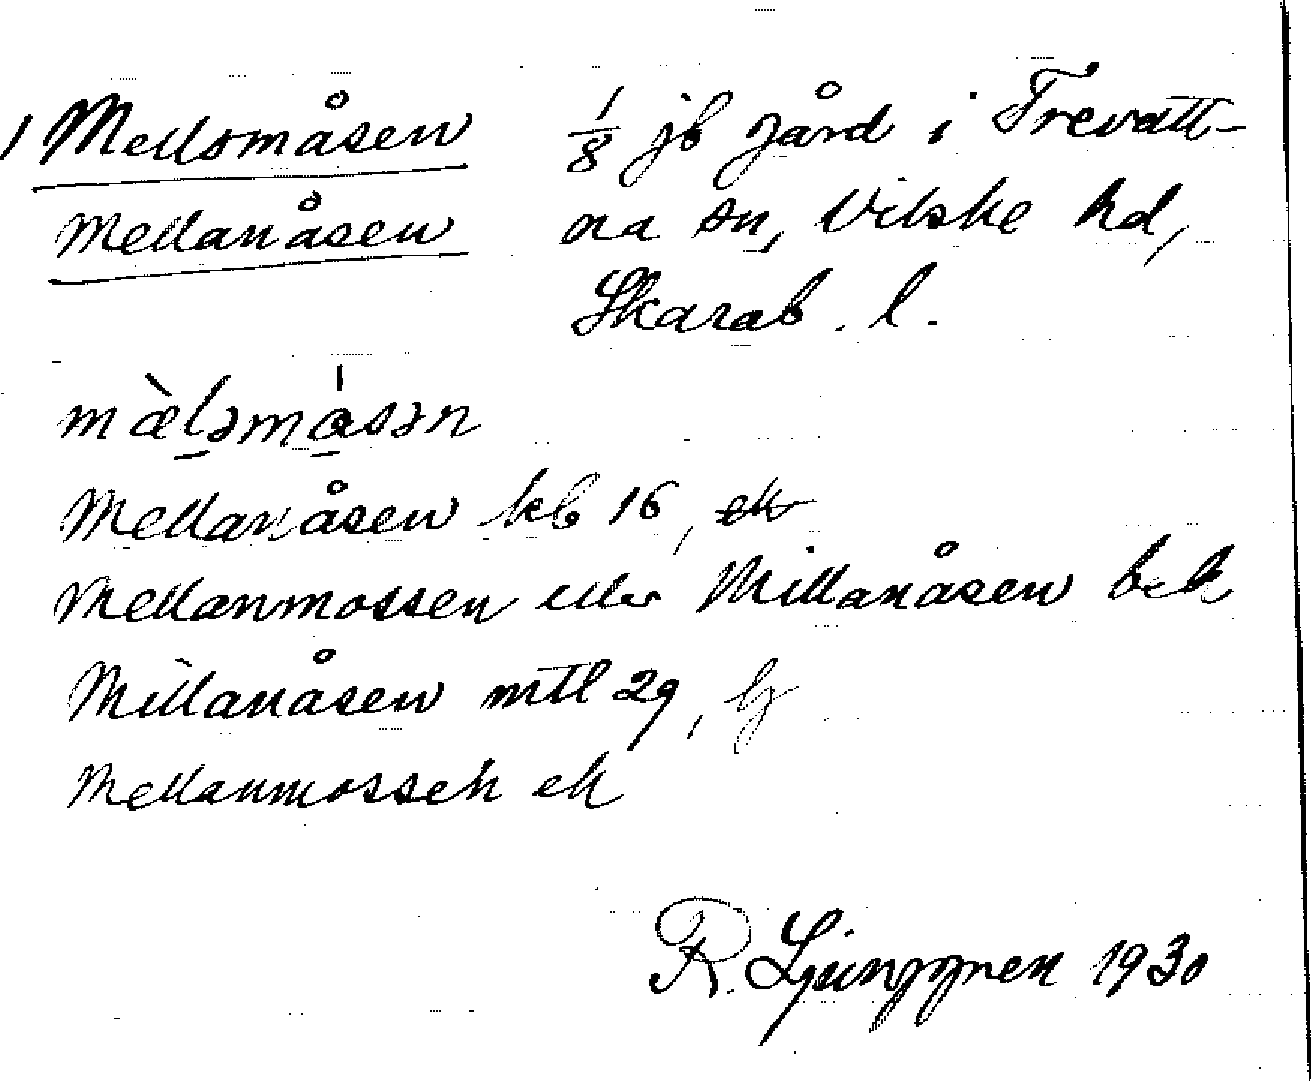 1 Mellomåsen 1/8 jb gård i Trevatt-
Mellanåsen na sn, Vilske hd,
Skarab. l.
mæ̀ləmásən
Mellanåsen kb 16, ek
Mellanmossen eller Millanåsen bek
Millanåsen mtl 29,
Mellanmossen ek
R. Ljunggren 1930